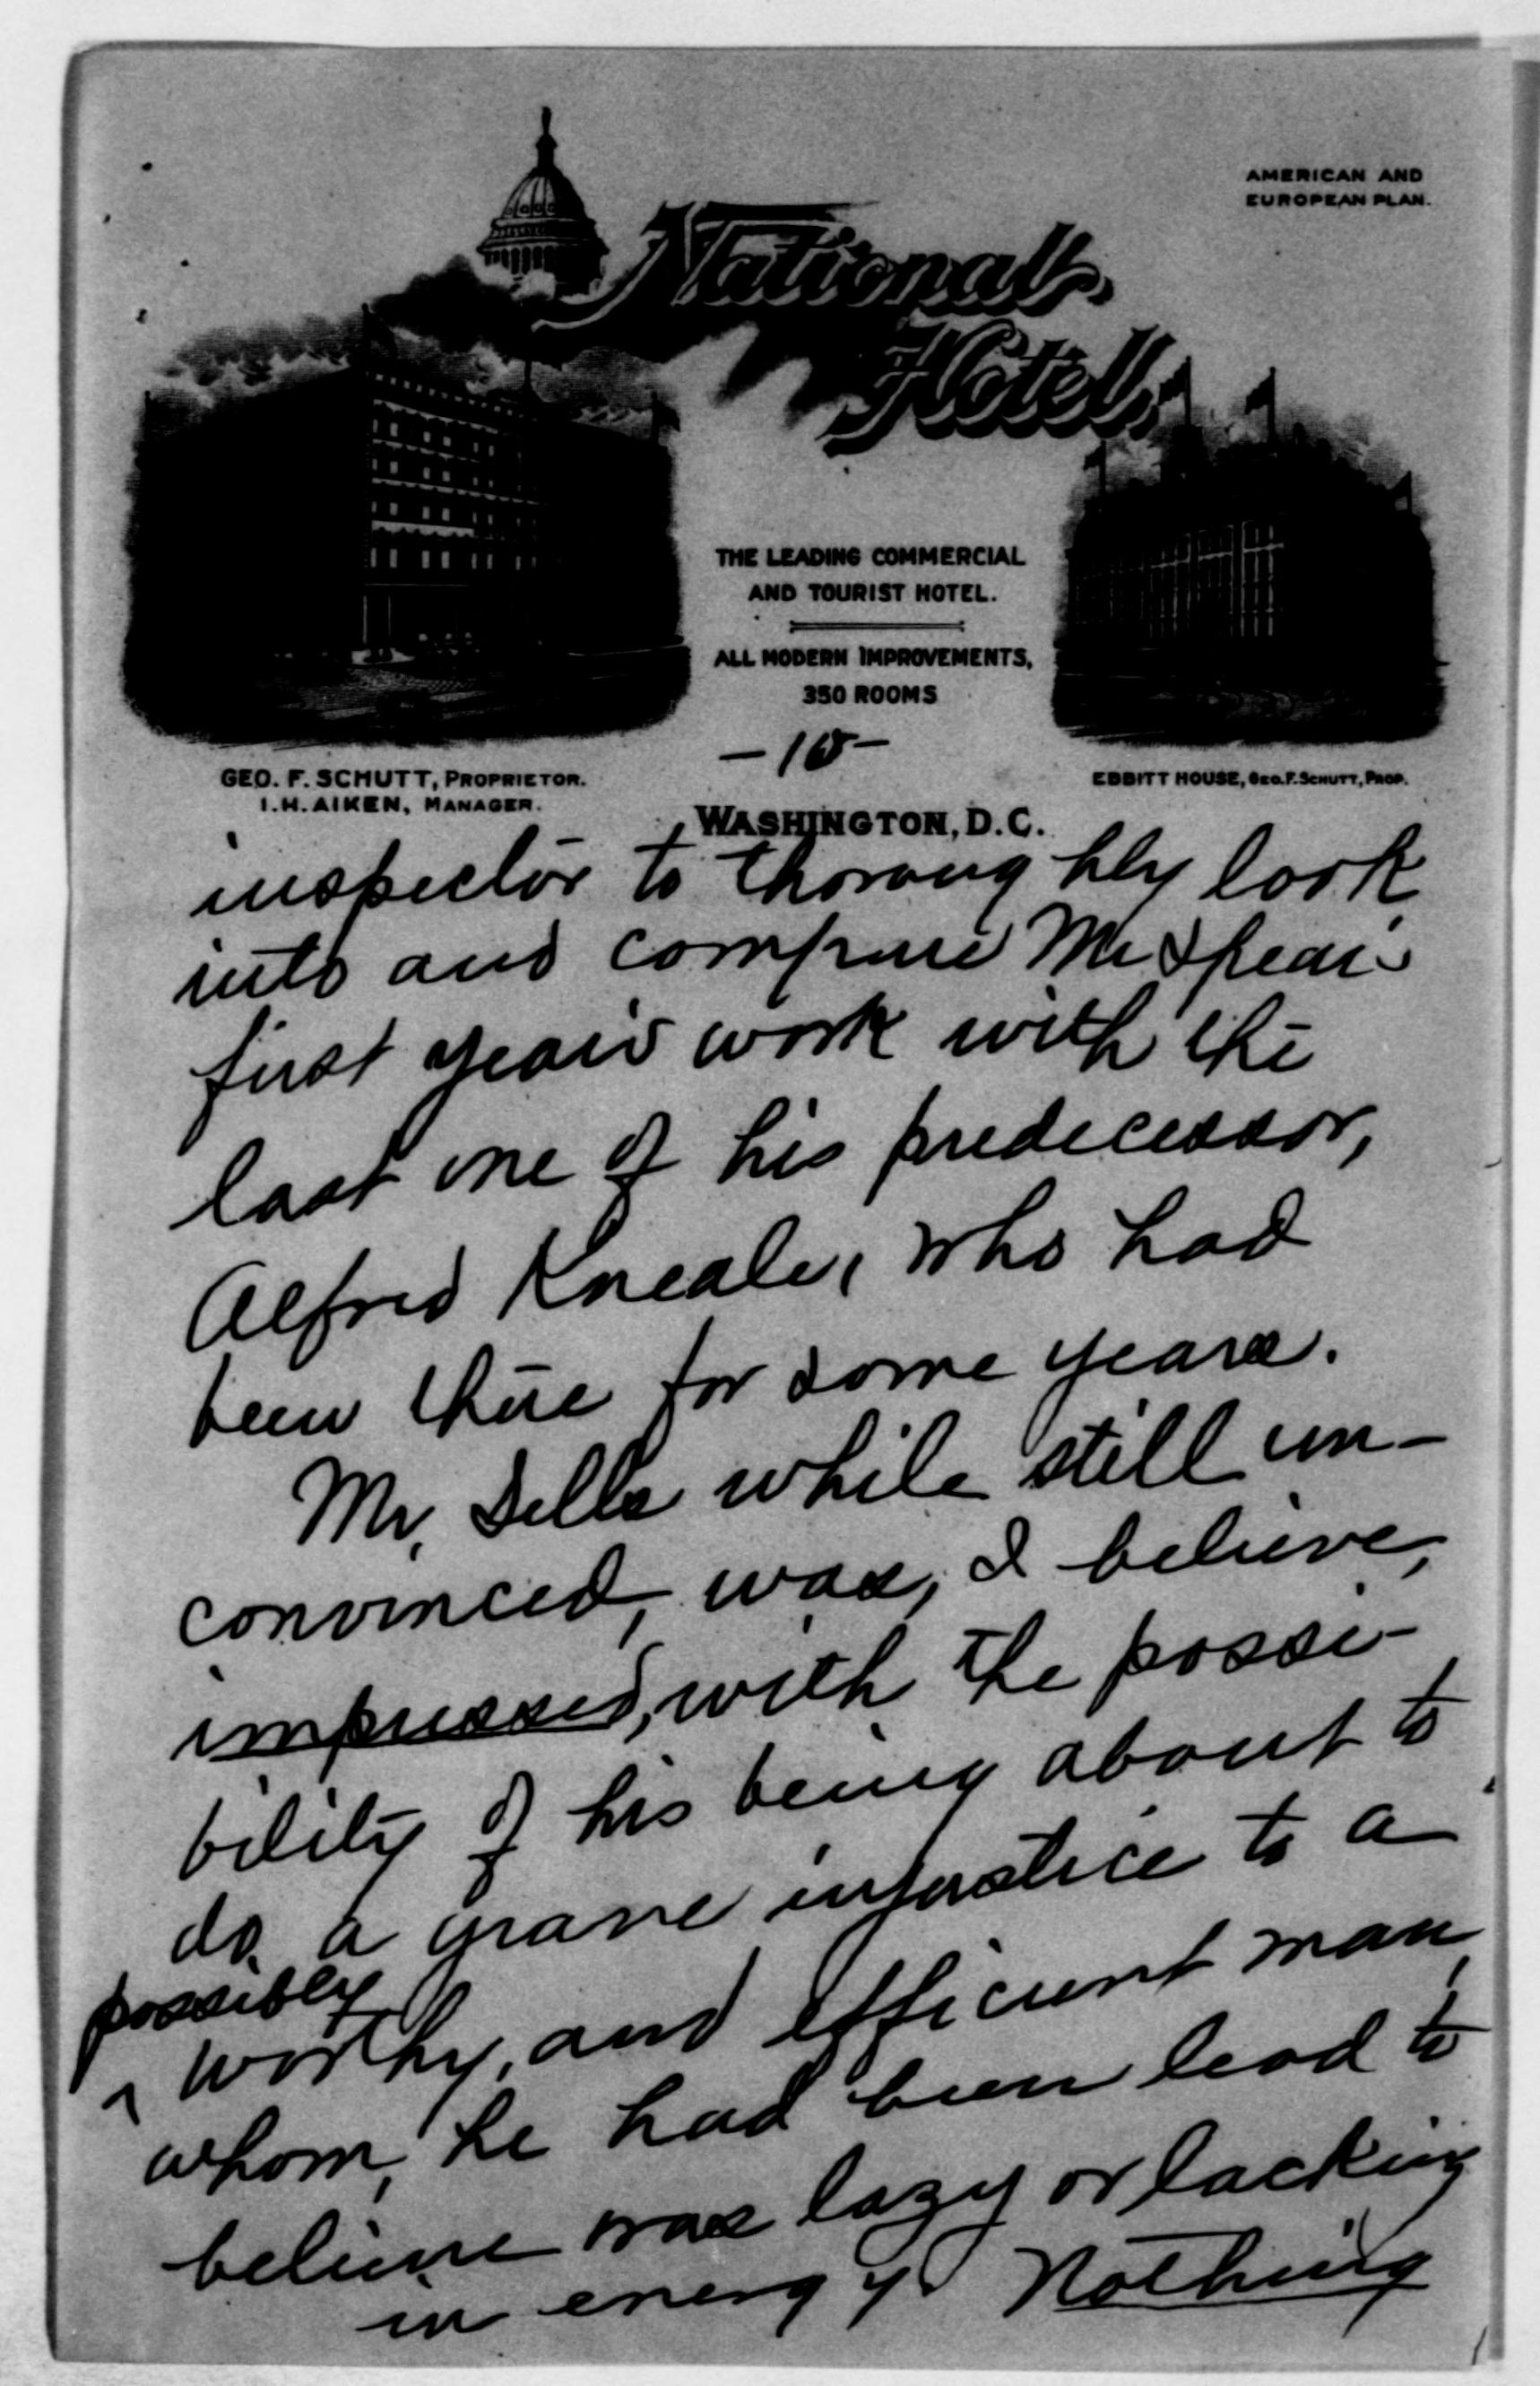 AMERICAN AND
EUROPEAN PLAN.
National
Hotel
THE LEADING COMMERCIAL
AND TOURIST HOTEL.
ALL MODERN IMPROVEMENTS,
350 ROOMS
GEO. F. SCHUTT, PROPRIETOR.
I.H. AIKEN, MANAGER.
EBBITT HOUSE, GEO. F. SCHUTT, PROP.
WASHINGTON, D.C.
inspector to thoroughly look
into and compare Mr Spear's
first year's work with the
last one of his predecessor,
Alfred Kneale, who had
been there for some years.
Mr. Sells while still un-
convinced, was, I believe,
impressed, with the possi-
bility of his being about to
do a grave injustice to a
possibly
^ worthy, and efficient man,
whom, he had been lead to
believe was lazy or lacking
in energy. Nothing